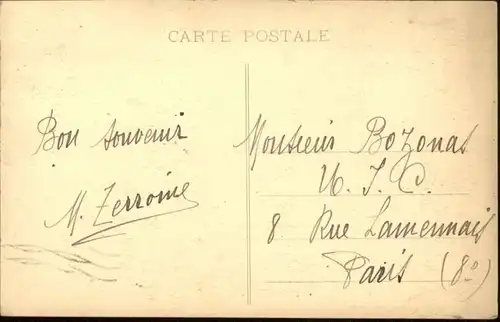 CARTE POSTALE
Bon souvenir
M. Zerroine
Monsieur Bozonas
U. J. C.
8 Rue Lamennais
Paris (8e)